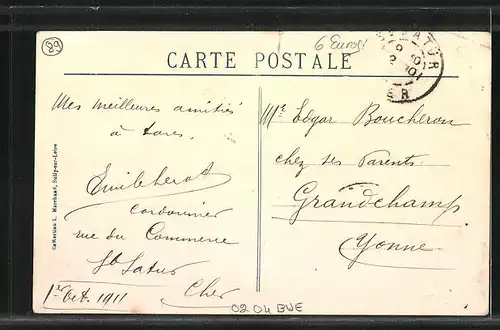 89
6 Euros
CARTE POSTALE
Mes meilleures amitiés
à tous.
cordonnier
rue du Commerce
St Satur
Cher
1er Oct. 1911
Mr Edgar Boucheron
chez ses Parents
Grandchamp
Yonne
0204 BUE
Collection L. Marchand, Sully-sur-Loire